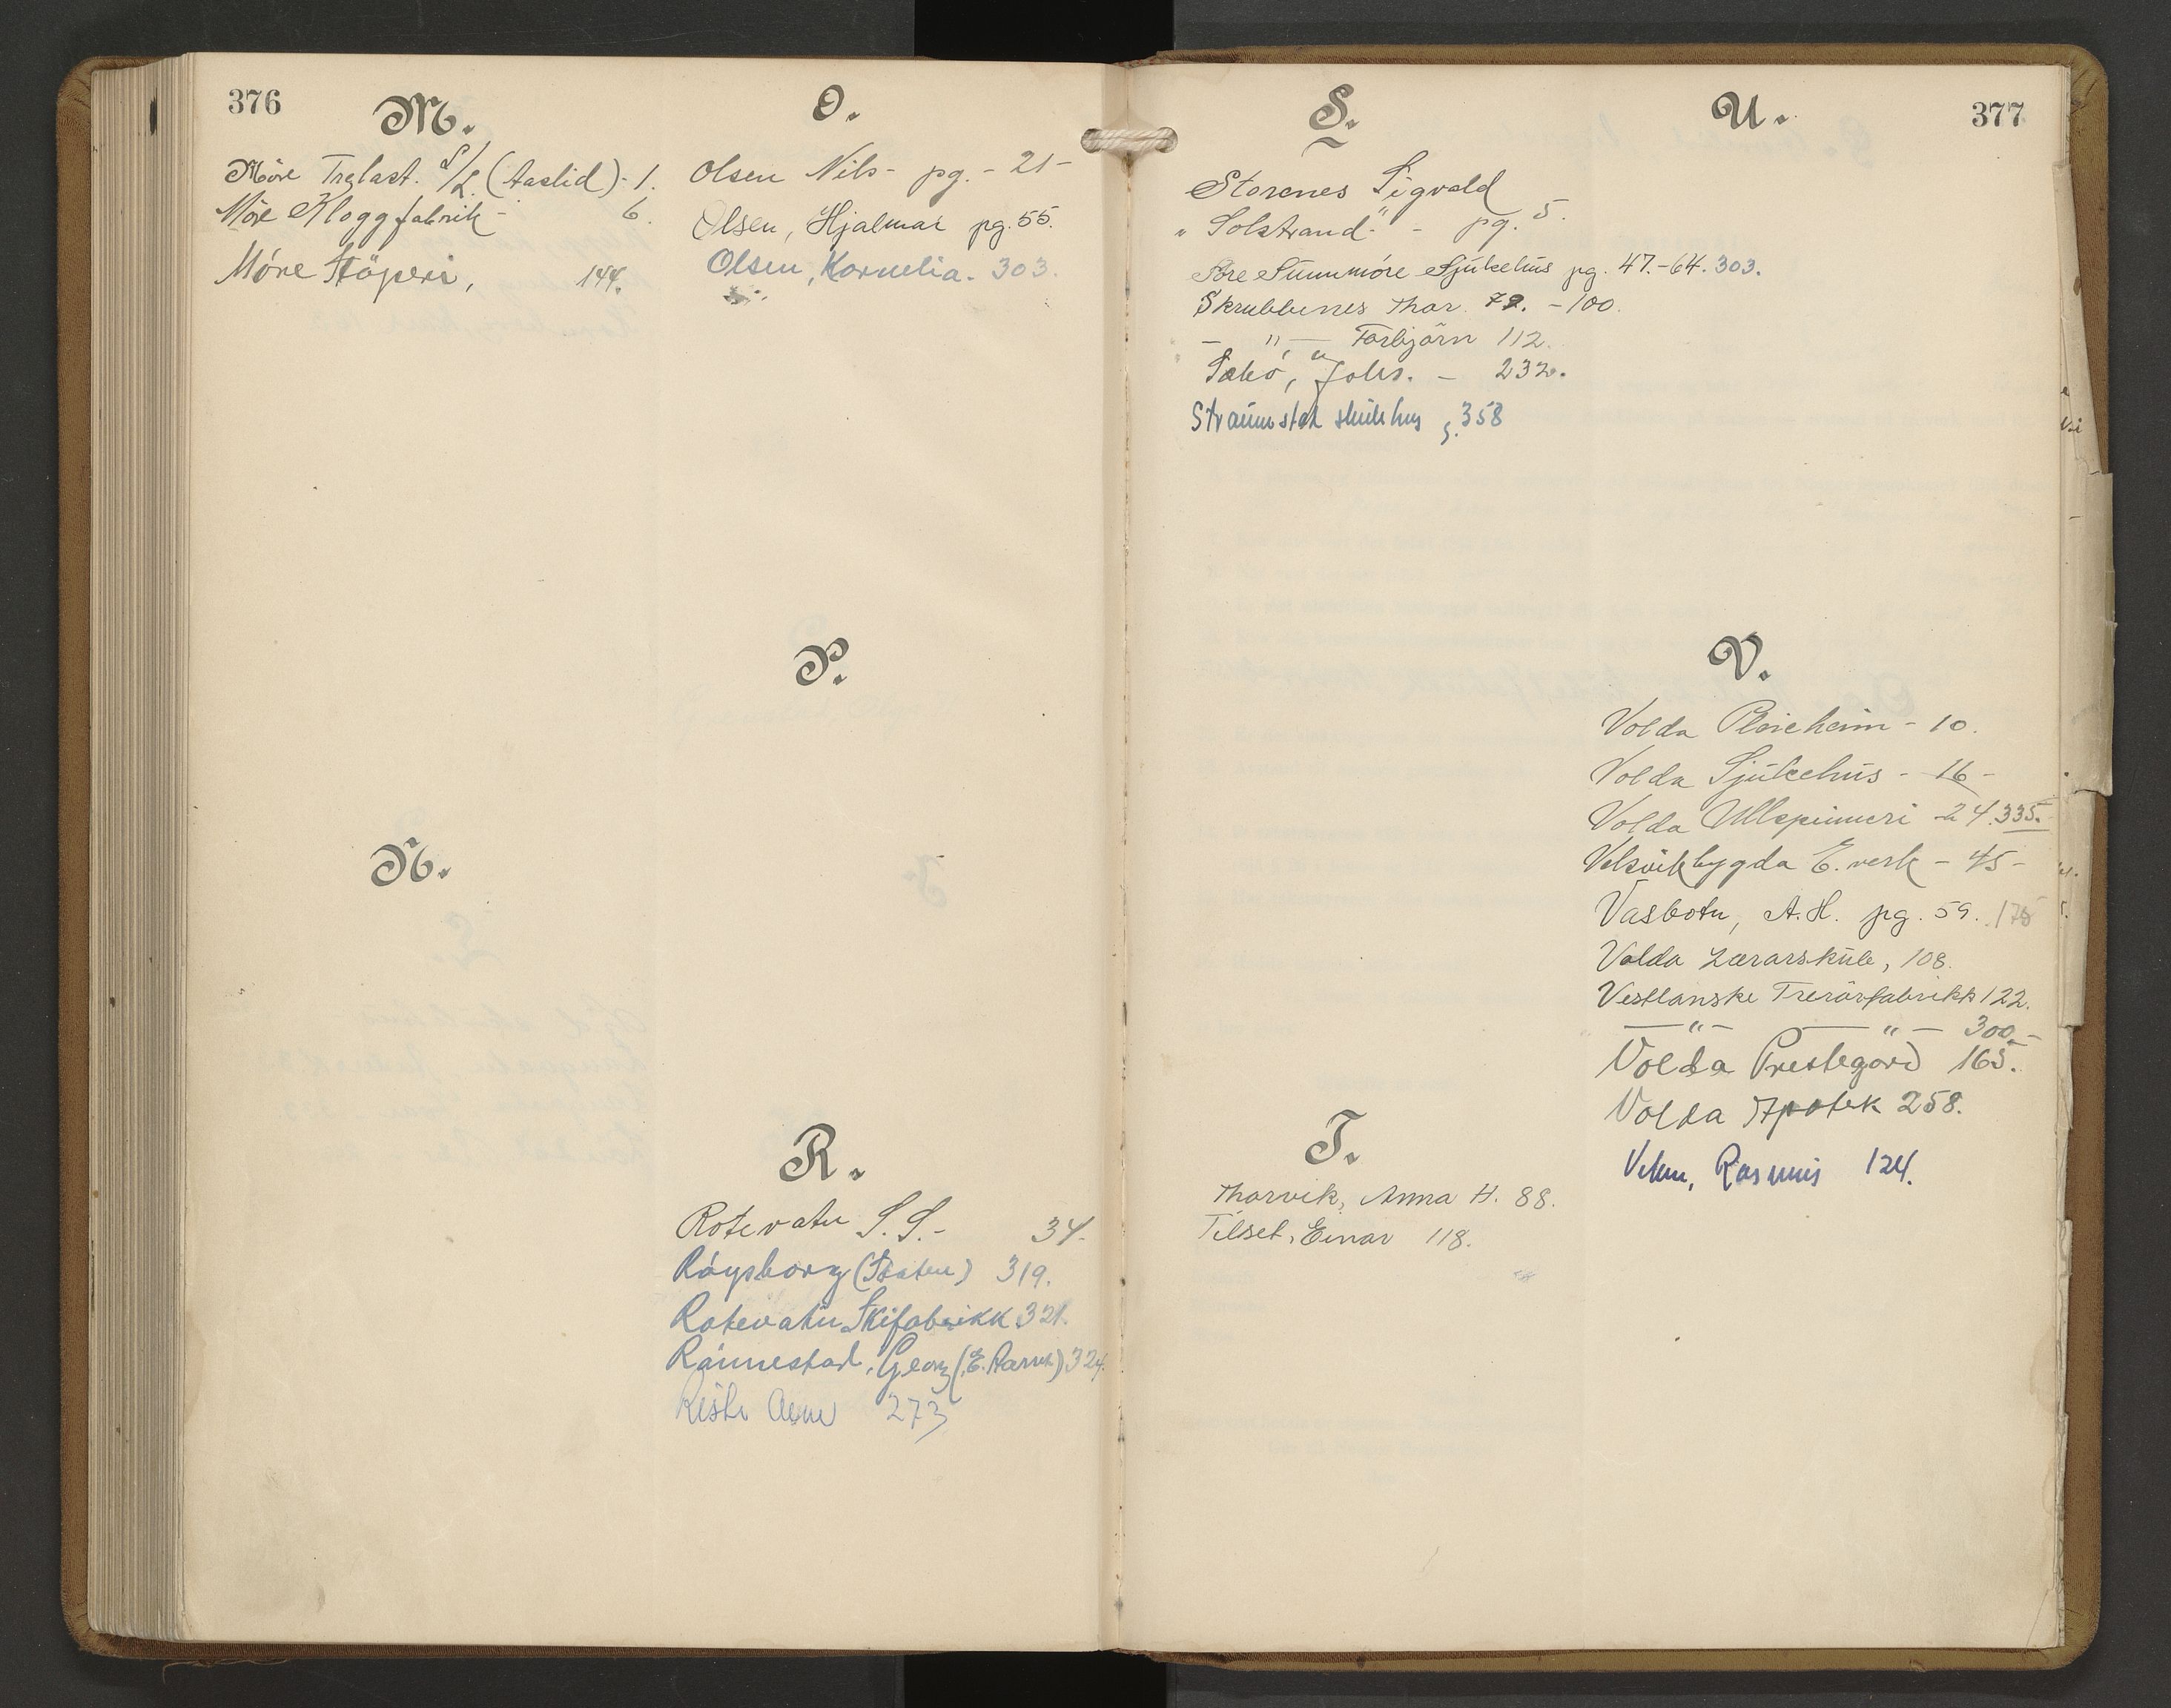 376
M.
Móre Trelast. S/L. (Aaslid) - 1.
Móre Kloggfabrik - 6.
Móre Stöperi, 144.
N.
O.
Olsen Nils - pg. - 21 -
Olsen, Hjalmar pg. 55.
Olsen, Kornelia. 303.
P.
R.
Rotevatn S. S. - 34.
Róysborg (Staten) 319.
Rotevatn Skifabrikk 321.
Rónnestad, Georg (E. ) 324.
Riste 273
S.
Storenes Sigvald
"Solstrand" - pg. 5.
Sóre Sunnmóre Sjukehus pg. 47. - 64. 303.
Skrubbenes Thor. 72. - 100.
- " - Torbjörn 112.
Sæbö, Johs. - 232.
358
T.
Thorvik, Anna H. 88.
Tilset, Einar 118.
377
U.
V.
Volda Pleieheim - 10.
Volda Sjukehus - 16 -
Volda Ullspinneri - 24. 335.
Velsvikbygda E. verk - 45 -
Vasbotn, A. H. pg. 59. 175
Volda Lærarskule, 108.
Vestlanske Trerörfabrikk 122.
- " - - " - 300. -
Volda Prestegard 165.
Volda Apotek 258.
Rasmus 124.